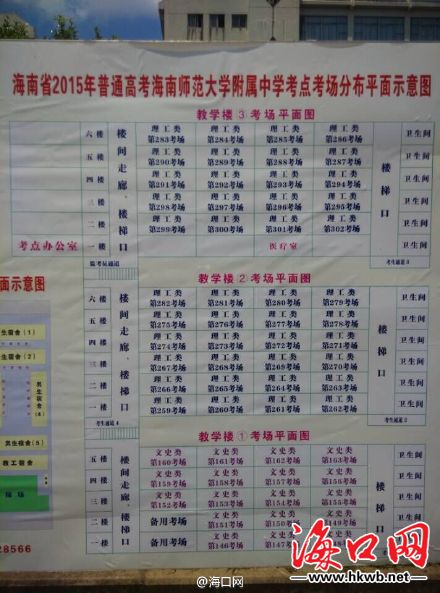 海南省2015年普通高考海南师范大学附属中学考点考场分布平面示意图
教学楼 3 考场平面图
六楼 理工类 理工类 理工类 理工类 卫生间
第283考场 第284考场 第285考场 第286考场
五楼 理工类 理工类 理工类 理工类 卫生间
第290考场 第289考场 第288考场 第287考场
四楼 理工类 理工类 理工类 理工类 卫生间
第291考场 第292考场 第293考场 第294考场
三楼 理工类 理工类 理工类 理工类 卫生间
第298考场 第297考场 第296考场 第295考场
二楼 理工类 理工类 理工类 理工类 卫生间
第299考场 第300考场 第301考场 第302考场
考点办公室 一楼 医疗室 卫生间
楼间走廊、楼梯口
楼梯口
监考员通道
考生通道3
教学楼 2 考场平面图
六楼 理工类 理工类 理工类 理工类 卫生间
第282考场 第281考场 第280考场 第279考场
五楼 理工类 理工类 理工类 理工类 卫生间
第275考场 第276考场 第277考场 第278考场
四楼 理工类 理工类 理工类 理工类 卫生间
第274考场 第273考场 第272考场 第271考场
三楼 理工类 理工类 理工类 理工类 卫生间
第267考场 第268考场 第269考场 第270考场
二楼 理工类 理工类 理工类 理工类 卫生间
第266考场 第265考场 第264考场 第263考场
一楼 理工类 理工类 理工类 理工类 卫生间
第259考场 第260考场 第261考场 第262考场
楼间走廊、楼梯口
楼梯口
考生通道4
考生通道2
教学楼 ① 考场平面图
五楼 文史类 文史类 文史类 文史类 卫生间
第160考场 第161考场 第162考场 第163考场
四楼 文史类 文史类 文史类 文史类 卫生间
第159考场 第158考场 第157考场 第156考场
三楼 文史类 文史类 文史类 文史类 卫生间
第152考场 第153考场 第154考场
二楼 备用考场 文史类 文史类 文史类
第151考场 第150考场 第149考场
一楼 备用考场 文史类 文史类 文史类
第146考场 第147考场
楼间走廊、楼梯口
楼梯口
面示意图
生宿舍(1)
生宿舍(2)
男生宿舍(4)
男生宿舍(5)
教工宿舍
操场
28566
@海口网
海口网
www.hkwb.net